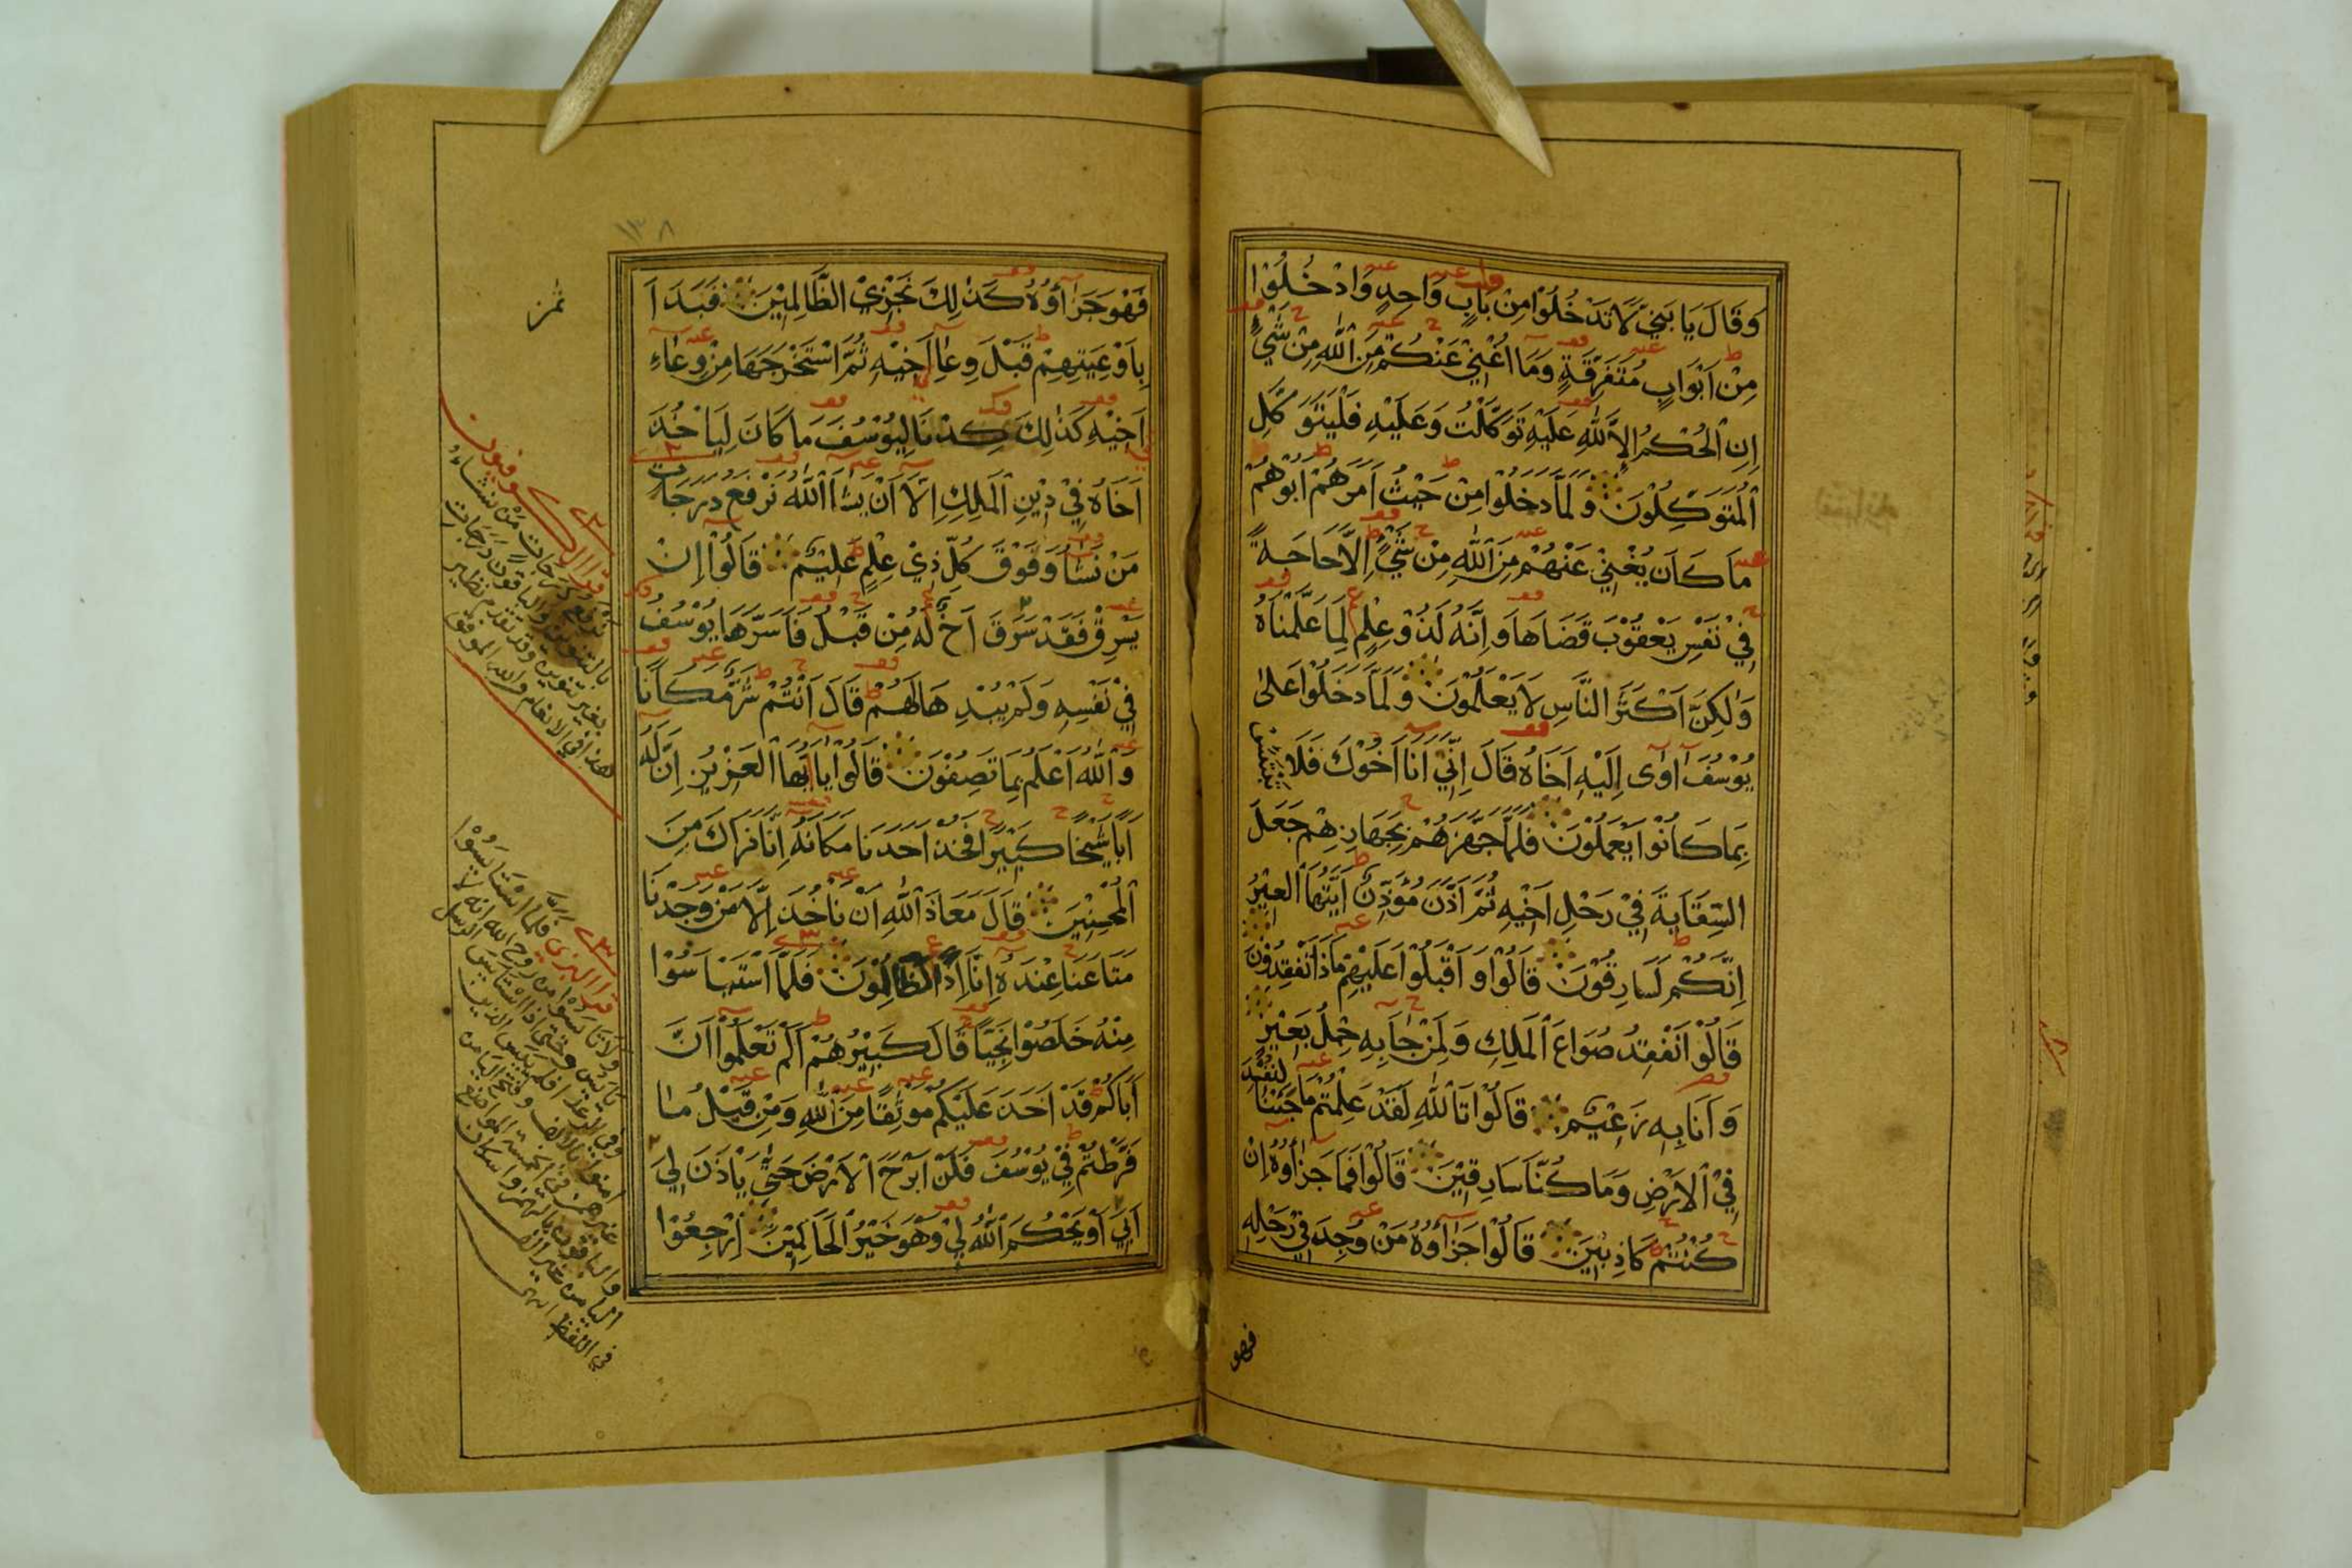 وَقَالَ يَا بَنِيَّ لَا تَدْخُلُوْا مِنْ بَابٍ وَاحِدٍ وَادْخُلُوْا
مِنْ اَبْوَابٍ مُتَفَرِّقَةٍ وَمَا اُغْنِيْ عَنْكُمْ مِنَ اللّٰهِ مِنْ شَيْءٍ
اِنِ الْحُكْمُ اِلَّا لِلّٰهِ عَلَيْهِ تَوَكَّلْتُ وَعَلَيْهِ فَلْيَتَوَكَّلِ
الْمُتَوَكِّلُوْنَ وَلَمَّا دَخَلُوْا مِنْ حَيْثُ اَمَرَهُمْ اَبُوْهُمْ
مَا كَانَ يُغْنِيْ عَنْهُمْ مِنَ اللّٰهِ مِنْ شَيْءٍ اِلَّا حَاجَةً
فِيْ نَفْسِ يَعْقُوْبَ قَضَاهَا وَاِنَّهُ لَذُوْ عِلْمٍ لِمَا عَلَّمْنَاهُ
وَلٰكِنَّ اَكْثَرَ النَّاسِ لَا يَعْلَمُوْنَ وَلَمَّا دَخَلُوْا عَلٰى
يُوْسُفَ اٰوٰى اِلَيْهِ اَخَاهُ قَالَ اِنِّيْ اَنَا اَخُوْكَ فَلَا تَبْتَئِسْ
بِمَا كَانُوْا يَعْمَلُوْنَ فَلَمَّا جَهَّزَهُمْ بِجَهَازِهِمْ جَعَلَ
السِّقَايَةَ فِيْ رَحْلِ اَخِيْهِ ثُمَّ اَذَّنَ مُؤَذِّنٌ اَيَّتُهَا الْعِيْرُ
اِنَّكُمْ لَسَارِقُوْنَ قَالُوْا وَاَقْبَلُوْا عَلَيْهِمْ مَاذَا تَفْقِدُوْنَ
قَالُوْا نَفْقِدُ صُوَاعَ الْمَلِكِ وَلِمَنْ جَاءَ بِهِ حِمْلُ بَعِيْرٍ
وَاَنَا بِهِ زَعِيْمٌ قَالُوْا تَاللّٰهِ لَقَدْ عَلِمْتُمْ مَا جِئْنَا لِنُفْسِدَ
فِي الْاَرْضِ وَمَا كُنَّا سَارِقِيْنَ قَالُوْا فَمَا جَزَاؤُهُ اِنْ
كُنْتُمْ كَاذِبِيْنَ قَالُوْا جَزَاؤُهُ مَنْ وُجِدَ فِيْ رَحْلِهِ
فهو
١٣٨
فَهُوَ جَزَاؤُهُ كَذٰلِكَ نَجْزِي الظَّالِمِيْنَ فَبَدَاَ
بِاَوْعِيَتِهِمْ قَبْلَ وِعَاءِ اَخِيْهِ ثُمَّ اسْتَخْرَجَهَا مِنْ وِعَاءِ
اَخِيْهِ كَذٰلِكَ كِدْنَا لِيُوْسُفَ مَا كَانَ لِيَاْخُذَ
اَخَاهُ فِيْ دِيْنِ الْمَلِكِ اِلَّا اَنْ يَشَاءَ اللّٰهُ نَرْفَعُ دَرَجَاتِ
مَنْ نَشَاءُ وَفَوْقَ كُلِّ ذِيْ عِلْمٍ عَلِيْمٌ قَالُوْا اِنْ
يَسْرِقْ فَقَدْ سَرَقَ اَخٌ لَهُ مِنْ قَبْلُ فَاَسَرَّهَا يُوْسُفُ
فِيْ نَفْسِهِ وَلَمْ يُبْدِهَا لَهُمْ قَالَ اَنْتُمْ شَرٌّ مَكَانًا
وَاللّٰهُ اَعْلَمُ بِمَا تَصِفُوْنَ قَالُوْا يَا اَيُّهَا الْعَزِيْزُ اِنَّ لَهُ
اَبًا شَيْخًا كَبِيْرًا فَخُذْ اَحَدَنَا مَكَانَهُ اِنَّا نَرَاكَ مِنَ
الْمُحْسِنِيْنَ قَالَ مَعَاذَ اللّٰهِ اَنْ نَاْخُذَ اِلَّا مَنْ وَجَدْنَا
مَتَاعَنَا عِنْدَهُ اِنَّا اِذًا لَظَالِمُوْنَ فَلَمَّا اسْتَيْاَسُوْا
مِنْهُ خَلَصُوْا نَجِيًّا قَالَ كَبِيْرُهُمْ اَلَمْ تَعْلَمُوْا اَنَّ
اَبَاكُمْ قَدْ اَخَذَ عَلَيْكُمْ مَوْثِقًا مِنَ اللّٰهِ وَمِنْ قَبْلُ مَا
فَرَّطْتُمْ فِيْ يُوْسُفَ فَلَنْ اَبْرَحَ الْاَرْضَ حَتّٰى يَاْذَنَ لِيَ
اَبِيَ اَوْ يَحْكُمَ اللّٰهُ لِيْ وَهُوَ خَيْرُ الْحَاكِمِيْنَ اِرْجِعُوْا
قرأ الكوفيون
نرفع درجات من نشاء
بالتنوين والباقون درجات
بغير تنوين وقد تقدم نظير
هذا في الانعام والله الموفق
قرأ البزي فلما استايسوا